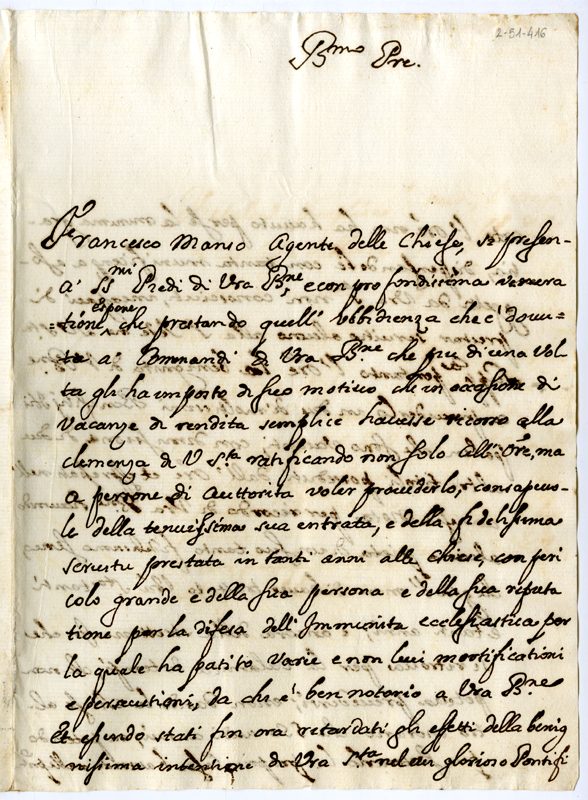 2-51-416
Bmo Pre.
Francesco Manso Agente delle Chiese, si presen-
a' SSmi Piedi di Vra Bne, e con profondissima venera
=tione, espone che prestando quell' ubbidienza che e' dovu=
ta a' Commandi di Vra Bne che piu di una vol
ta gli ha imposto di suo motivo che in occasione di
Vacanze di rendita semplice havesse ricorso alla
clemenza di V Sta ratificando non solo all' Ore, ma
a persone di auttorita voler provederlo, consapevo-
le della tenuissima sua entrata, e della fidelissima
servitu prestata in tanti anni alle Chiese, con peri
colo grande e della sua persona e della sua riputa
tione per la difesa dell' Immunita ecclesiastica, per
la quale ha patito varie e non lievi mortificationi
e persecutioni, da che e' ben notorio a Vra Bne
Et essendo stati fin ora retardati gli effetti della benig
nissima intentione di Vra Sta nel suo glorioso Pontifi